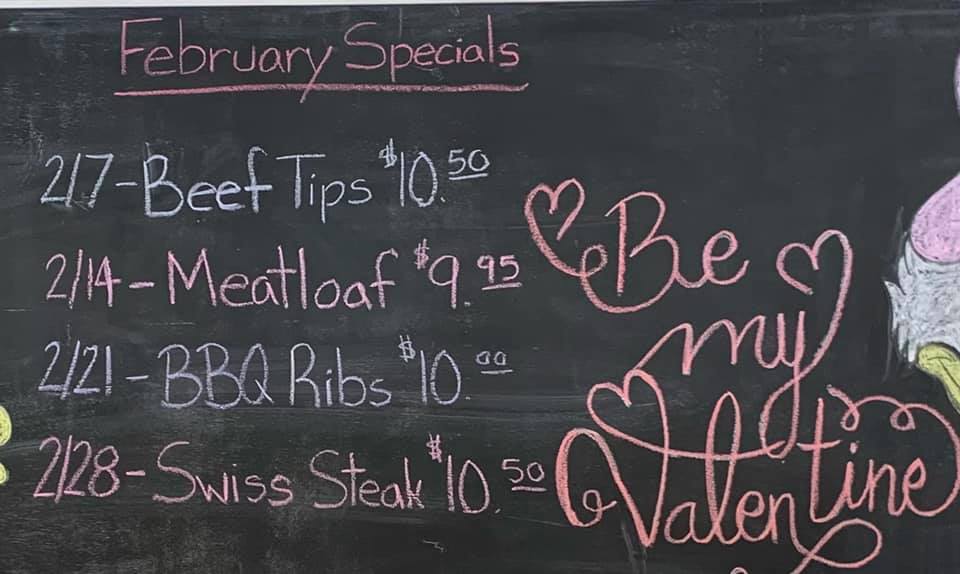 February Specials
2/7-Beef Tips $10.50
2/14-Meatloaf $9.95
2/21-BBQ Ribs $10.00
2/28-Swiss Steak $10.50
Be
my
Valentine